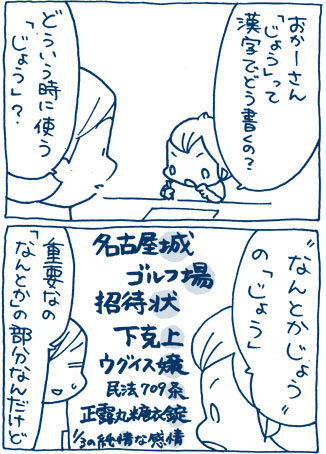 おかーさん
「じょう」って
漢字でどう書くの?
どういう時に使う
「じょう」?
“なんとかじょう”
の「じょう」
名古屋城
ゴルフ場
招待状
下克上
ウグイス嬢
民法709条
正露丸糖衣錠
1/3の純情な感情
重要なの
「なんとか」の
部分なんだけど